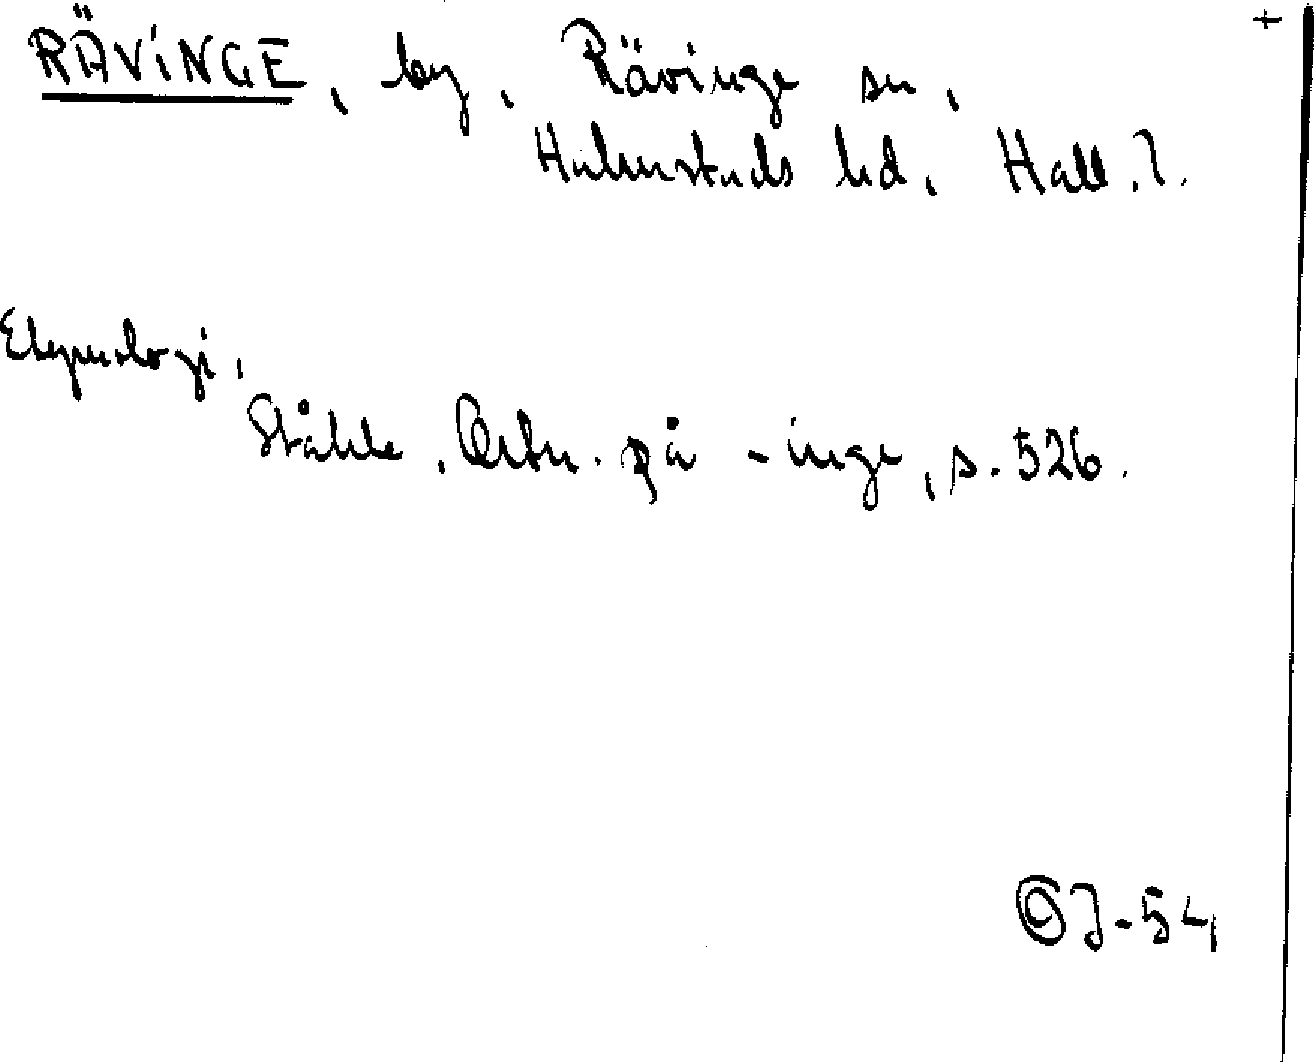 +
RÄVINGE, by, Rävinge sn,
Halmstads hd, Hall. l.
Etymologi,
Ståhle, Ortn. på -inge, s. 526.
OJ-54